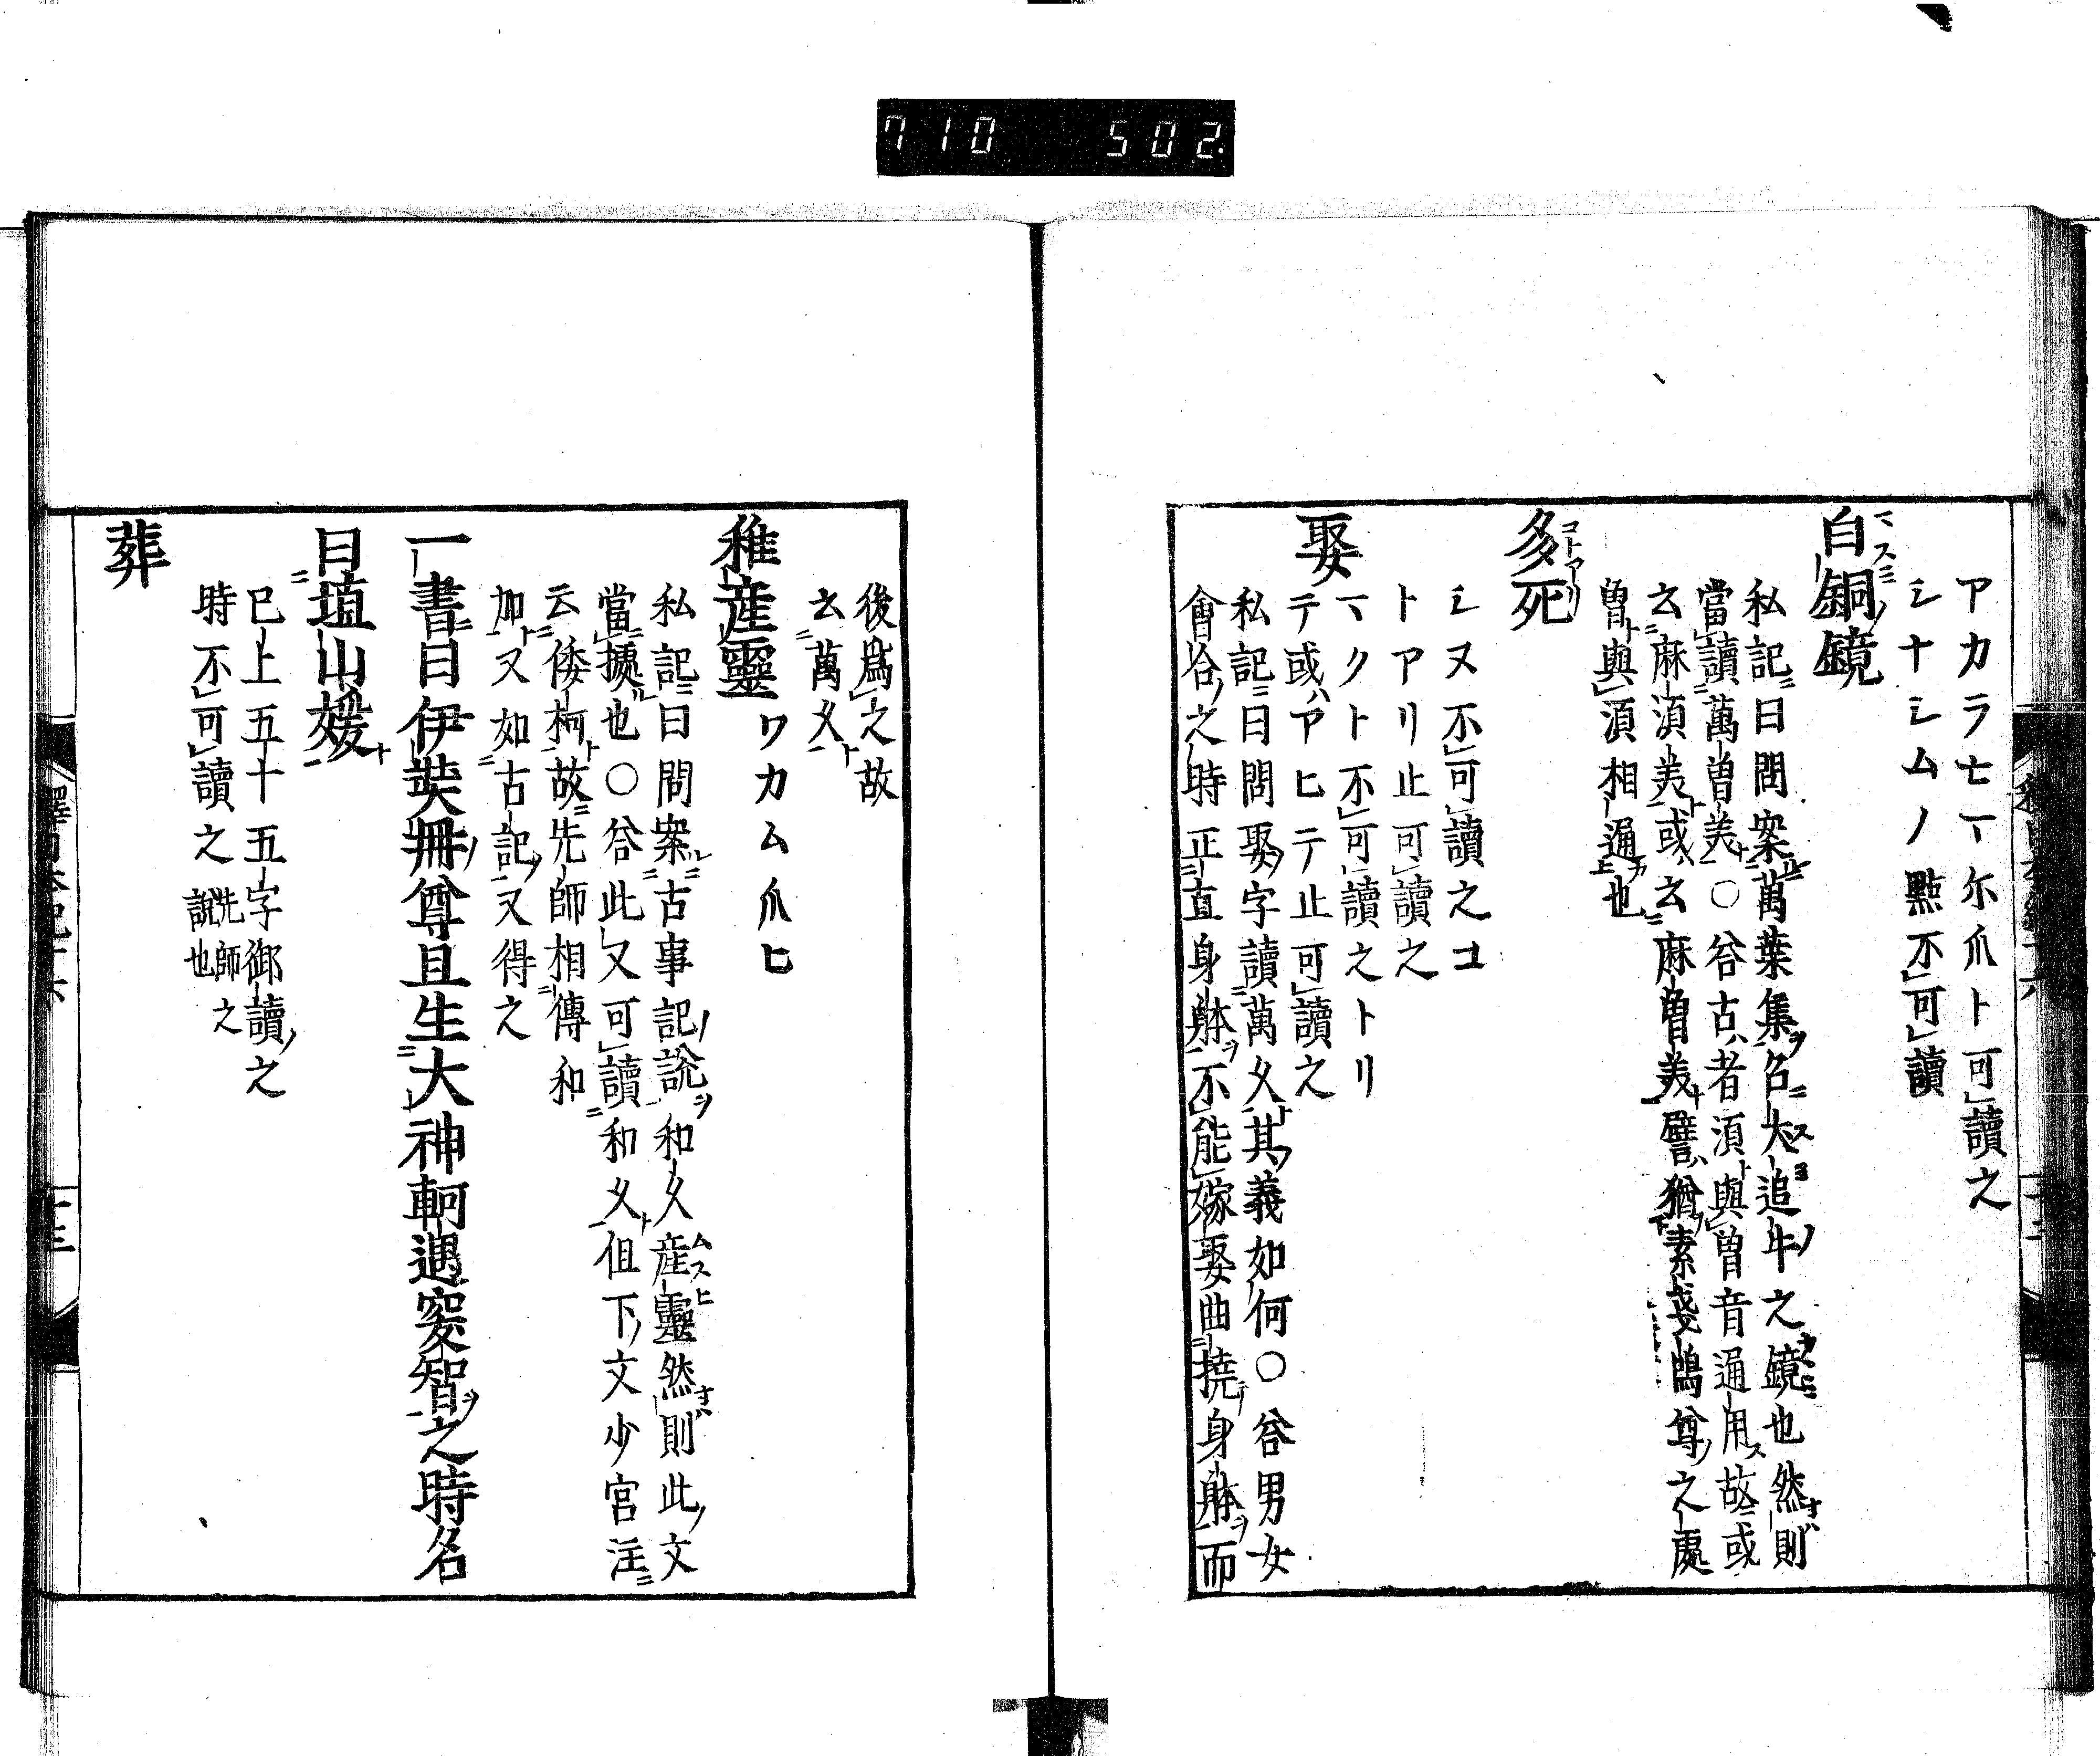 710 502
アカラセマ尓爪ト可讀之
シナシムノ點不可讀
白銅鏡
私記曰問案萬葉集召犬追牛之鏡也然則
當讀萬曽美〇荅古者湏與曽音通用故或
云麻湏美或云麻曽美譬猶素戔嗚尊之處
曽與湏相通也
多死
シヌ不可讀之コ
トアリ止可讀之
娶
マクト不可讀之トリ
テ或アヒテ止可讀之
私記曰問娶字讀萬久其義如何〇荅男女
會合之時正直身躰不能嫁娶曲撓身躰而
後爲之故
云萬久
稚産靈
ワカム爪ヒ
私記曰問案古事記說和久産靈然則此文
當據也〇荅此又可讀和久但下文少宮注
云倭柯故先師相傳和
加又如古記又得之
一書曰伊奘冊尊且生大神軻遇突智之時名
曰埴山媛
已上五十五字御讀之
時不可讀之先師之說也
葬